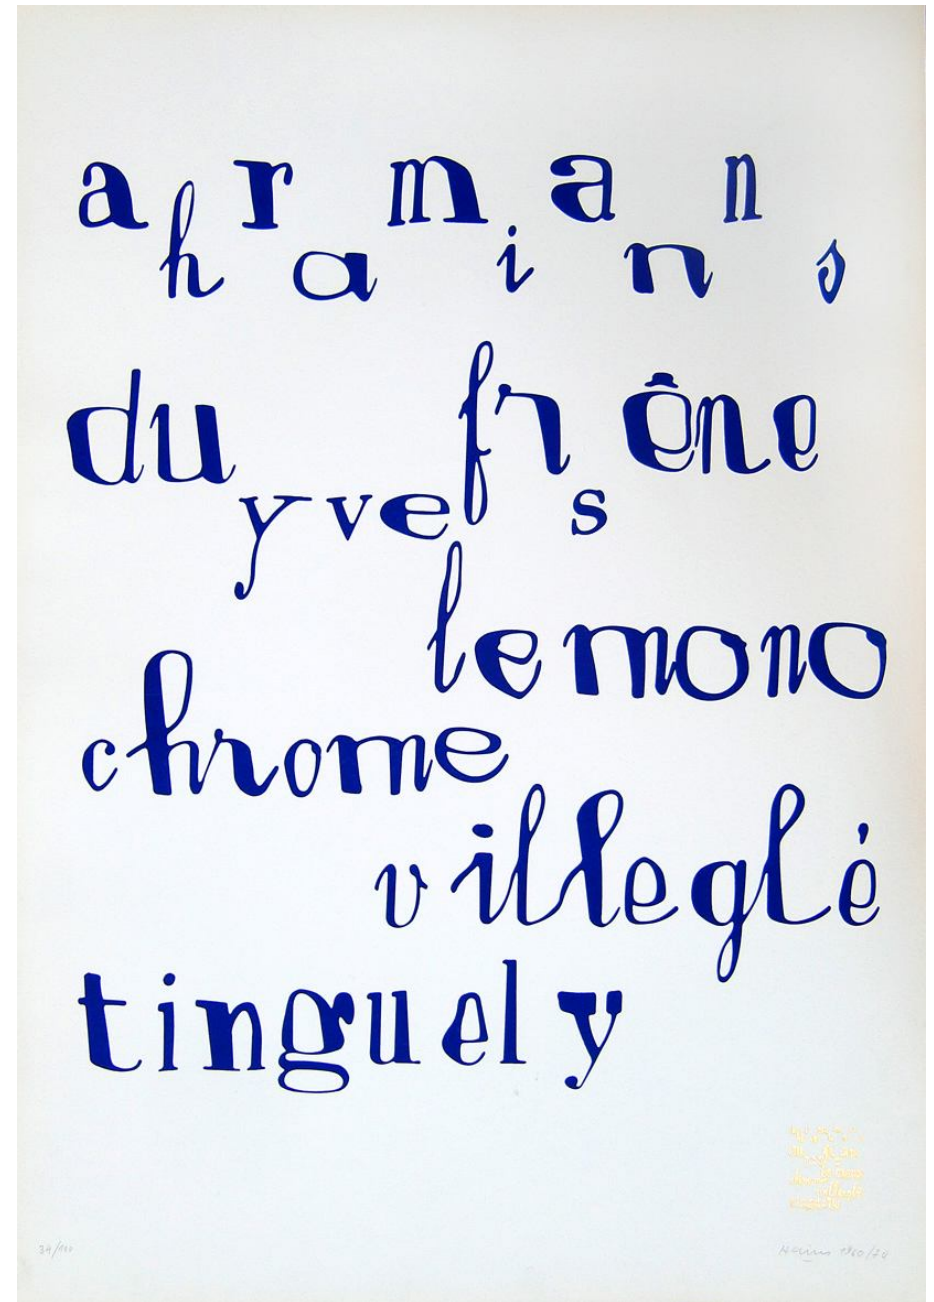 arman
hains
dufrêne
yves
lemono
chrome
villeglé
tinguely
34/100
Hains 1960/74